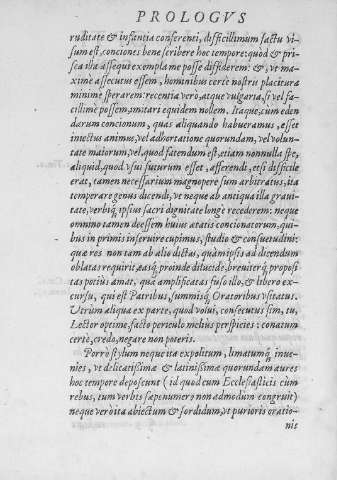 PROLOGVS
ruditate & infantia conferenti, difficillimum factu vi-
sum est, conciones bene scribere hoc tempore: quòd & pri-
sca illa assequi exempla me posse diffiderem: &, vt ma-
ximè assecutus essem, hominibus certè nostris placitura
minimè sperarem: recentia verò, atque vulgaria, si vel fa-
cillimè possem, imitari equidem nollem. Itaque, cùm eden-
darum concionum, quas aliquando habueramus, esset
iniectus animus, vel adhortatione quorundam, vel volun-
tate maiorum, vel, quod fatendum est, etiam nonnulla spe,
aliquid, quod vsui futurum esset, afferendi, etsi difficile
erat, tamen necessarium magnopere sum arbitratus, ita
temperare genus dicendi, vt neque ab antiqua illa grauita-
te, verbiq́; ipsius sacri dignitate longè recederem: neque
omnino tamen deessem huius ætatis concionatorum, qui-
bus in primis inseruire cupimus, studio & consuetudini:
quæ res non tam ab alio dictas, quàm ipsi ad dicendum
oblatas requirit, easq́; proinde dilucidè, breuiterq́; proposi-
tas potius amat, quàm amplificatas fuso illo, & libero ex-
cursu, qui est Patribus, summisq́; Oratoribus vsitatus.
Vtrùm aliqua ex parte, quod volui, consecutus sim, tu,
Lector optime, facto periculo melius perspicies: conatum
certè, credo, negare non poteris.
Porrò stylum neque ita expolitum, limatumq́; inue-
nies, vt delicatissimæ & latinissimæ quorundam aures
hoc tempore deposcunt (id quod cum Ecclesiasticis cùm
rebus, tum verbis sæpenumero non admodum congruit)
neque verò ita abiectum & sordidum, vt purioris oratio-
nis